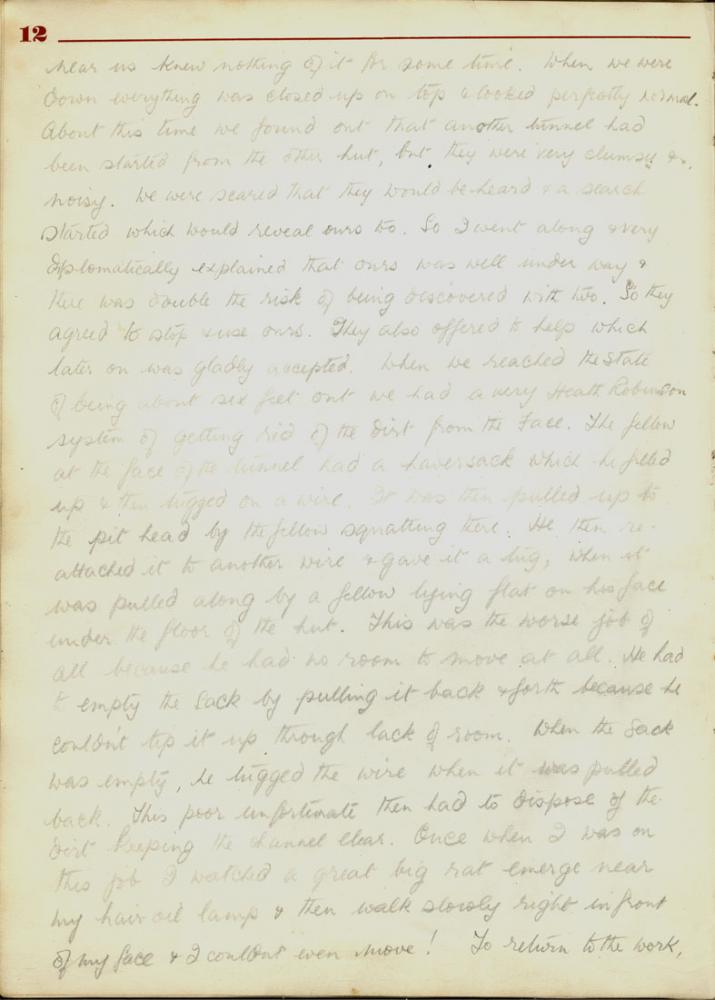 12
near us knew nothing of it for some time. When we were
down everything was closed up on top & looked perfectly normal.
About this time we found out that another tunnel had
been started from the other hut, but they were very clumsy &
noisy. We were scared that they would be heard & a search
started which would reveal ours too. So I went along & very
diplomatically explained that ours was well under way &
there was double the risk of being discovered with two. So they
agreed to stop & use ours. They also offered to help which
later on was gladly accepted. When we reached the state
of being about six feet out we had a very Heath Robinson
system of getting rid of the dirt from the Face. The fellow
at the face of the tunnel had a haversack which he filled
up & then tugged on a wire. It was then pulled up to
the pit head by the fellow squatting there. He then re-
attached it to another wire & gave it a tug, when it
was pulled along by a fellow lying flat on his face
under the floor of the hut. This was the worse job of
all because he had no room to move at all. He had
to empty the sack by pulling it back & forth because he
couldn't tip it up through lack of room. When the sack
was empty, he tugged the wire when it was pulled
back. This poor unfortunate then had to dispose of the
dirt keeping the channel clear. Once when I was on
this job I watched a great big rat emerge near
my hair oil lamp & then walk slowly right in front
of my face & I couldn't even move! To return to the work,